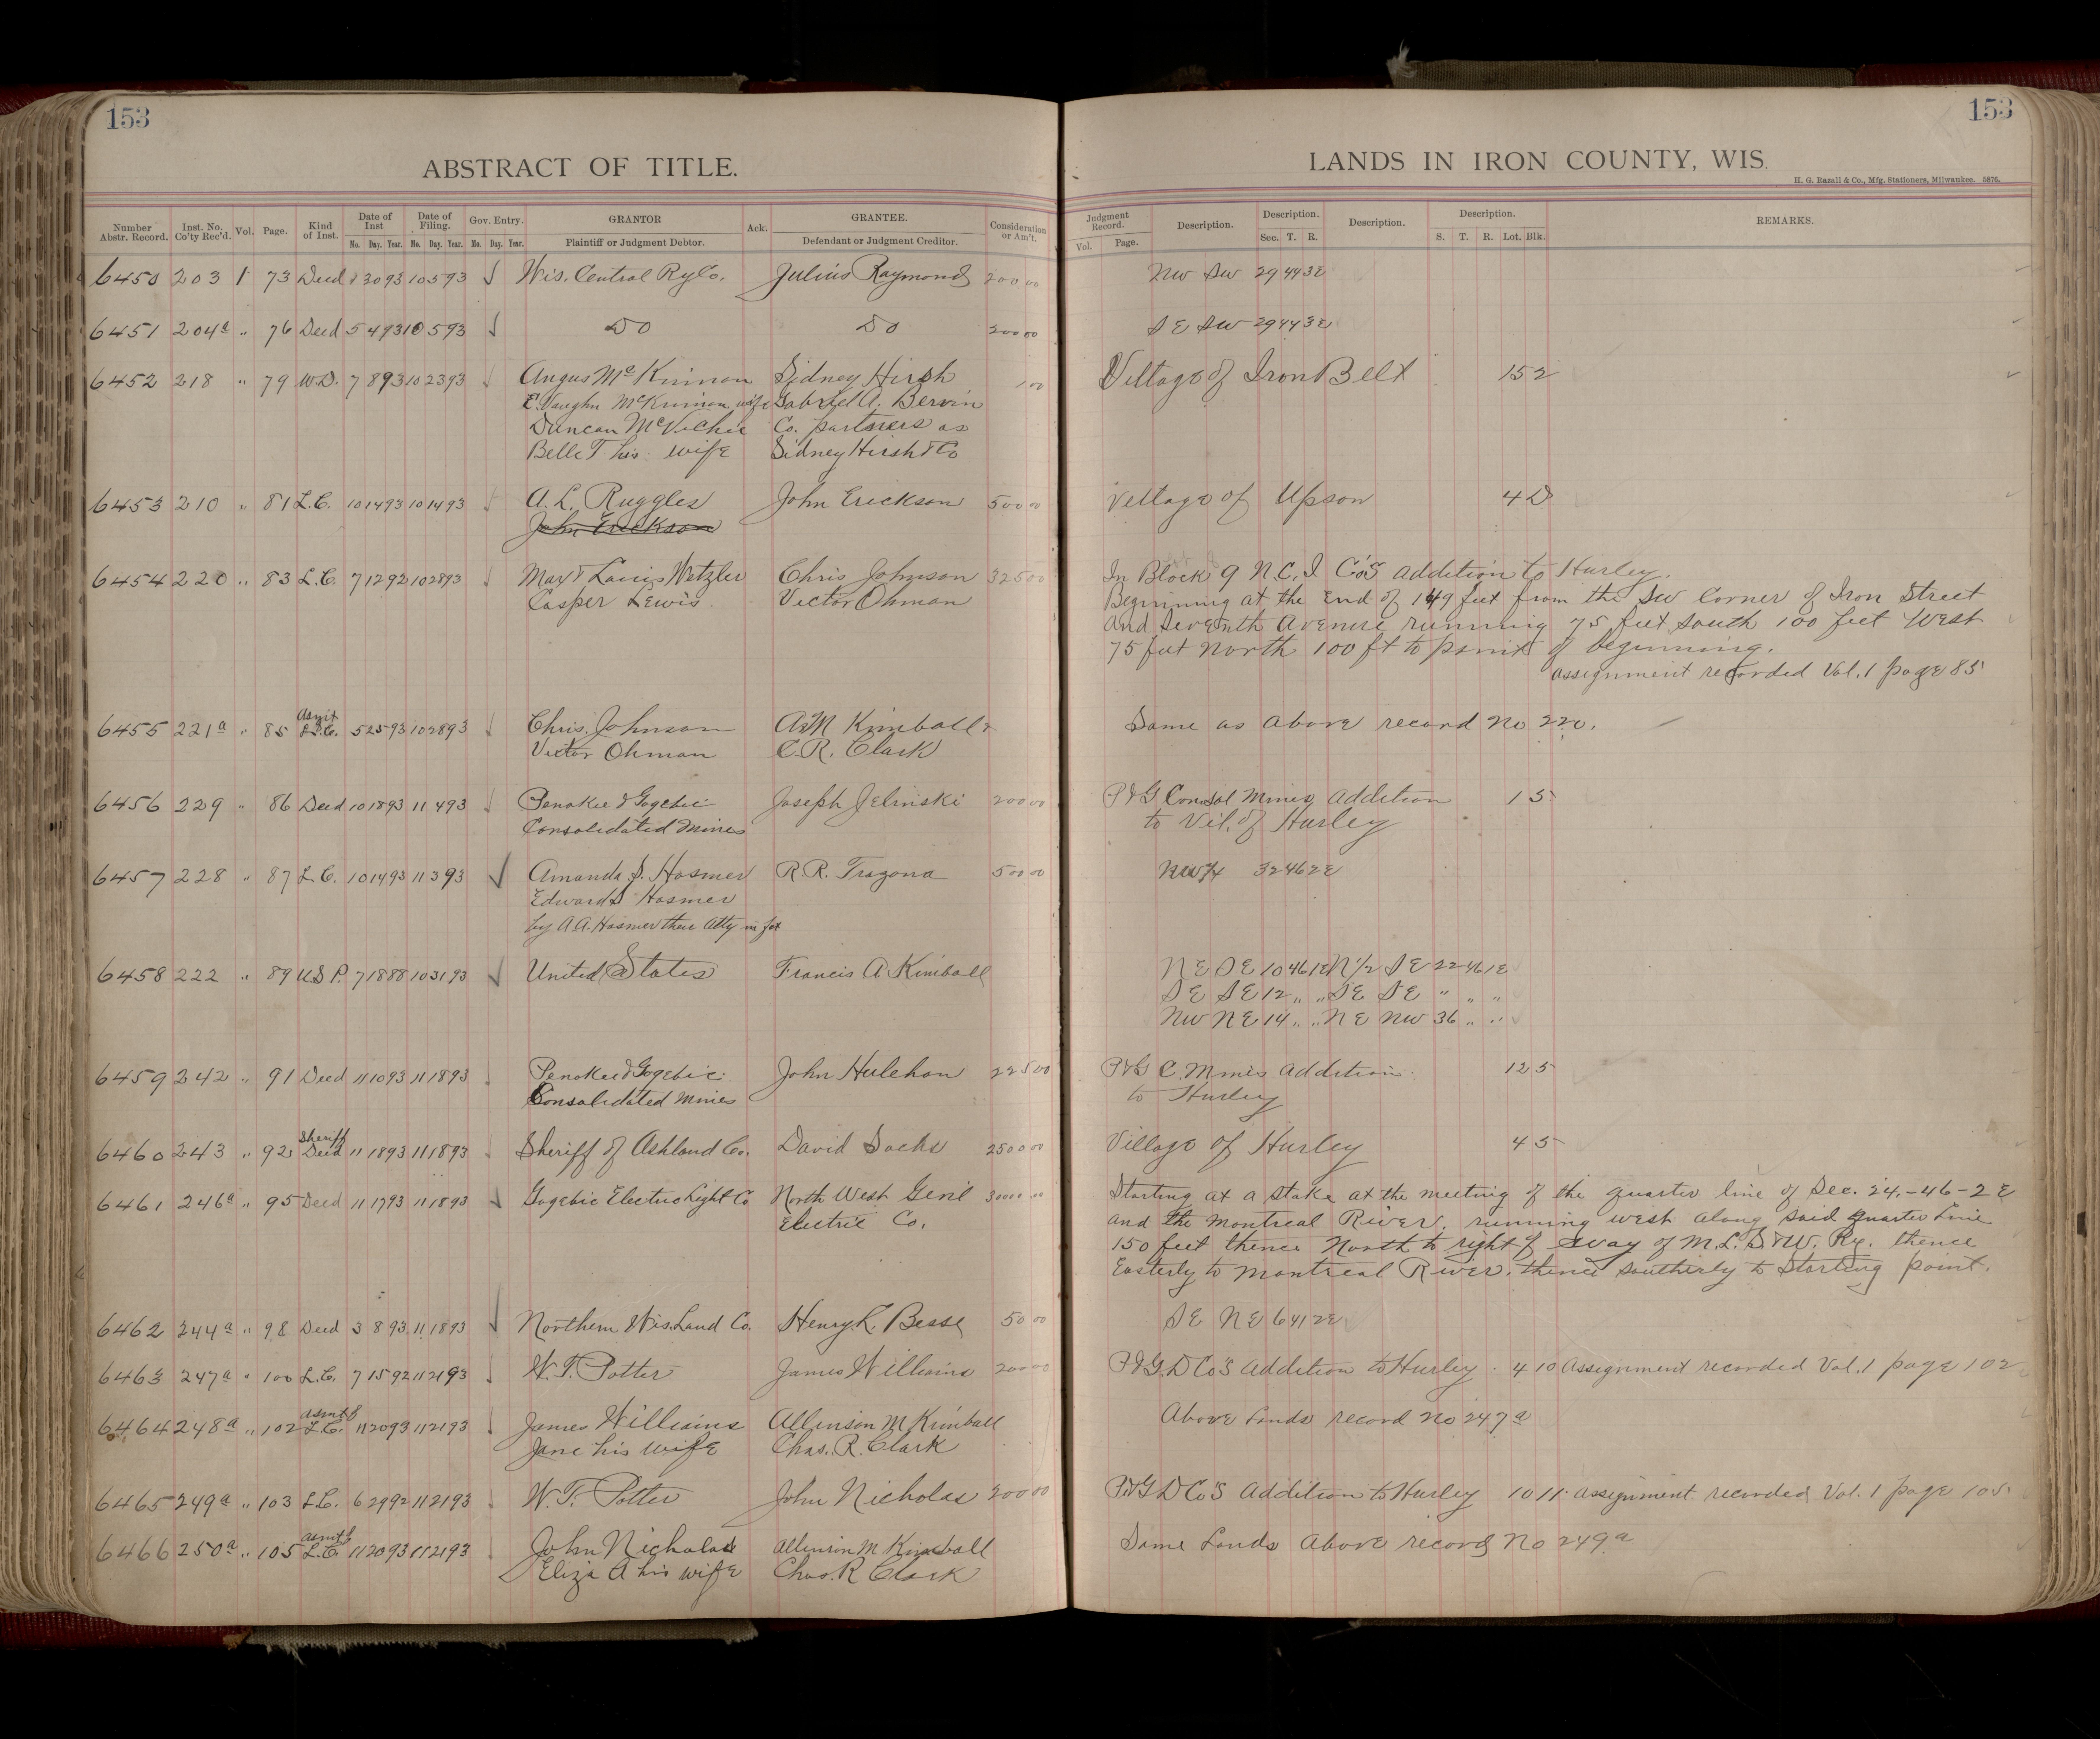 153
153
ABSTRACT OF TITLE.
LANDS IN IRON COUNTY, WIS.
H. G. Razall & Co., Mfg. Stationers, Milwaukee. 5876.
Number Abstr. Record. Inst. No. Co'ty Rec'd. Vol. Page. Kind of Inst. Date of Inst No. Day. Year. Date of Filing. No. Day. Year. Gov. Entry. No. Day. Year. GRANTOR Plaintiff or Judgment Debtor. Ack. GRANTEE. Defendant or Judgment Creditor. Consideration or Am't. Judgment Record. Vol. Page. Description. Description. Sec. T. R. Description. Description. S. T. R. Lot. Blk. REMARKS.
6450 203 1 73 Deed 8 30 93 10 5 93 Wis. Central Ry Co. Julius Raymond 200 00 NW SW 29 44 3E
6451 204a " 76 Deed 5 4 93 10 5 93 Do Do 200 00 SE SW 29 44 3E
6452 218 " 79 W.D. 7 8 93 10 23 93 Angus McKinnon Sidney Hirsh 1 00 Village of Iron Belt 15 2
E. Vaughn McKinnon wife Gabriel A. Bervin
Duncan McVichie Co. partners as
Belle T his wife Sidney Hirsh & Co
6453 210 " 81 L.C. 10 14 93 10 14 93 A. L. Ruggles John Erickson 50 00 Village of Upson 4 D
John Erickson
6454 220 " 83 L.C. 7 12 92 10 28 93 Max & Louis Wetzler Chris Johnson 325 00 In Block 9 N.C.I Co's addition to Hurley.
Casper Lewis. Victor Ohman Beginning at the end of 149 feet from the SW Corner of Iron Street
and Seventh Avenue running 75 feet South 100 feet West
75 feet North 100 ft to point of beginning.
assignment recorded Vol. 1 page 85
6455 221a " 85 Asmt L.C. 5 25 93 10 28 93 Chris. Johnson A M Kimball & Same as above record No 220.
Victor Ohman C. R. Clark
6456 229 " 86 Deed 10 18 93 11 4 93 Penokee & Gogebic Joseph Jelinski 200 00 P & G Consol Mines Addition 1 5
Consolidated Mines to Vil. of Hurley
6457 228 " 87 L.C. 10 14 93 11 3 93 Amanda S. Hosmer R. R. Tragona 50 00 NW¼ 32 46 2E
Edward S Hosmer
by A A. Hosmer their Atty in fct
6458 222 " 89 U.S P. 7 18 88 10 31 93 United States Francis A Kimball NE SE 10 46 1E N 1/2 SE 22 46 1E
SE SE 12 " " SE SE " " "
NW NE 14 " " NE NW 36 " "
6459 242 " 91 Deed 11 10 93 11 18 93 Penokee & Gogebic John Hulehan 225 00 P & G C. Mines Addition 12 5
Consolidated Mines to Hurley
6460 243 " 92 Sheriff Deed 11 18 93 11 18 93 Sheriff of Ashland Co. David Sachs 2500 00 Village of Hurley 4 5
6461 246a " 95 Deed 11 17 93 11 18 93 Gogebic Electric Light Co North West Genl 30000 00 Starting at a stake at the meeting of the quarter line of Sec. 24.-46-2 E
Electric Co. and the Montreal River, running west along said quarter line
150 feet thence North to right of way of M.L.S & W. Ry. thence
Easterly to Montreal River. thence southerly to Starting point.
6462 244a " 98 Deed 3 8 93 11 18 93 Northern Wis. Land Co. Henry L. Besse 50 00 SE NE 6 41 2E
6463 247a " 100 L.C. 7 15 92 11 21 93 W. T. Potter James Williams 200 00 P & G. D Co's Addition to Hurley 4 10 Assignment recorded Vol. 1 page 102
6464 248a " 102 asmt of L.C. 11 20 93 11 21 93 James Williams Allinson M Kimball Above Lands record No 247a
Jane his wife Chas. R. Clark
6465 249a " 103 L.C. 6 29 92 11 21 93 W. T. Potter John Nicholas 200 00 P & G D Co's Addition to Hurley 10 11 Assignment recorded Vol. 1 page 105
6466 250a " 105 asmt of L.C. 11 20 93 11 21 93 John Nicholas Allinson M Kimball Same Lands Above record No 249a
Eliza A his wife Chas. R Clark